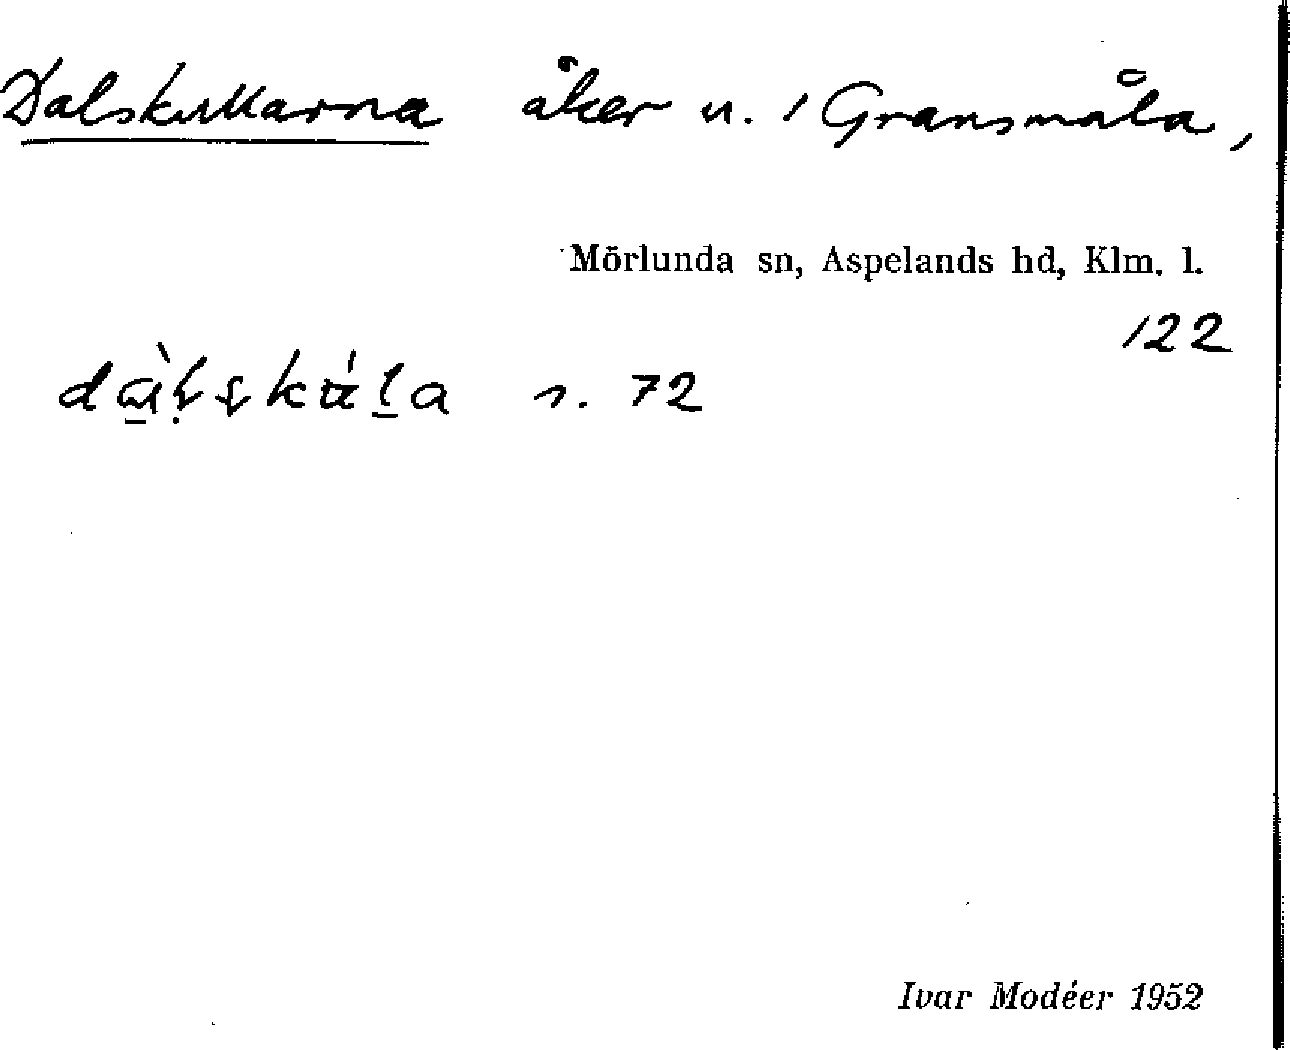 Dalskullarna åker u. 1 Gransmåla,
Mörlunda sn, Aspelands hd, Klm. l.
122
s. 72
Ivar Modéer 1952